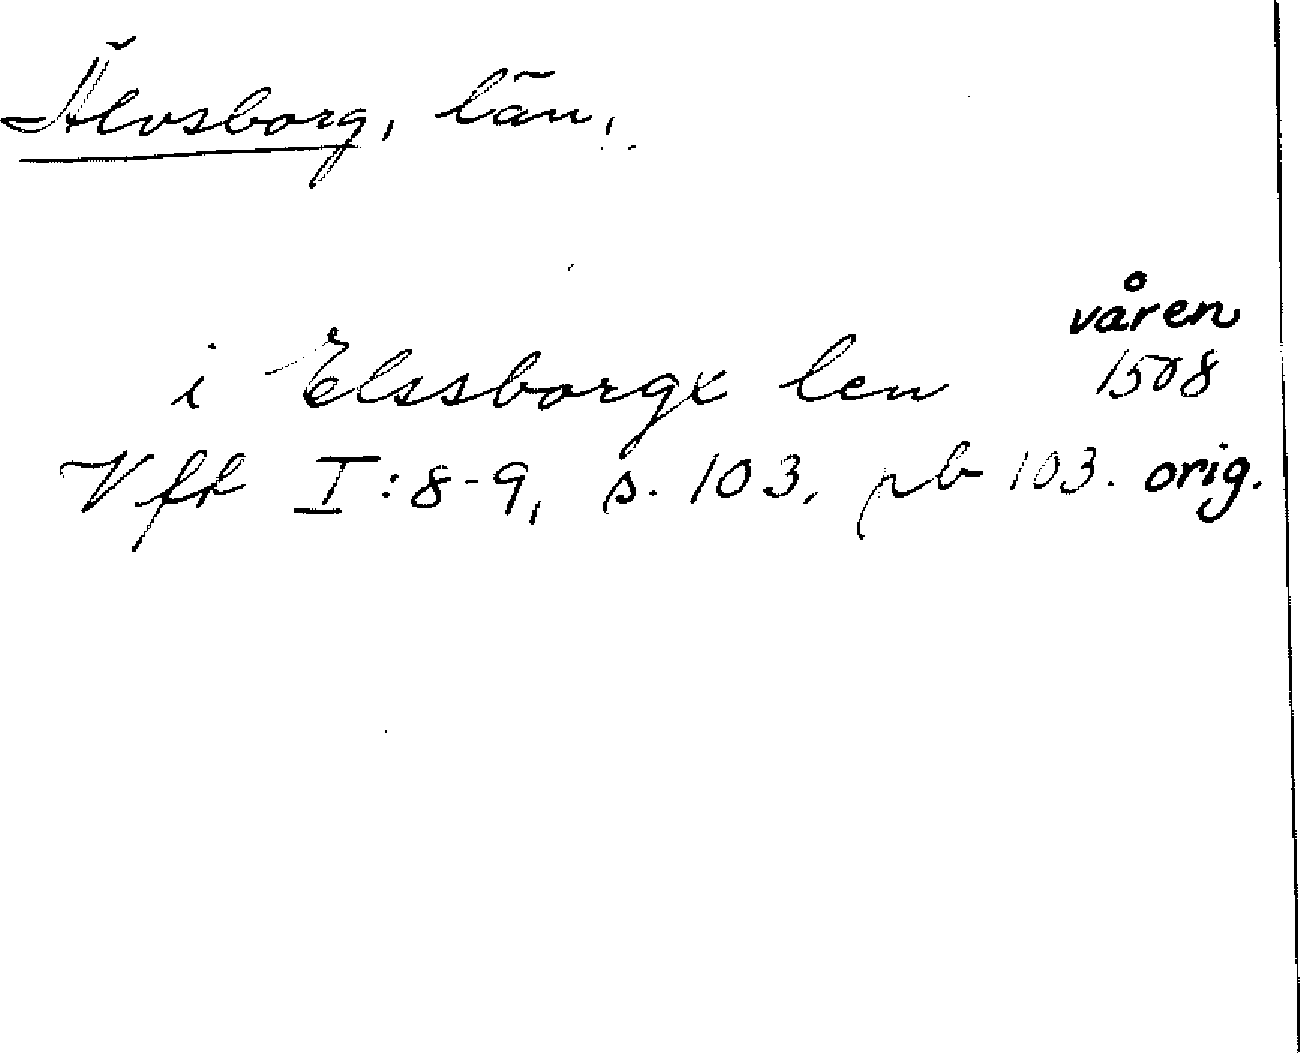 Älvsborg, län,
våren
i Elssborgx len 1508
Vft I:8-9, s. 103, pb 103. orig.